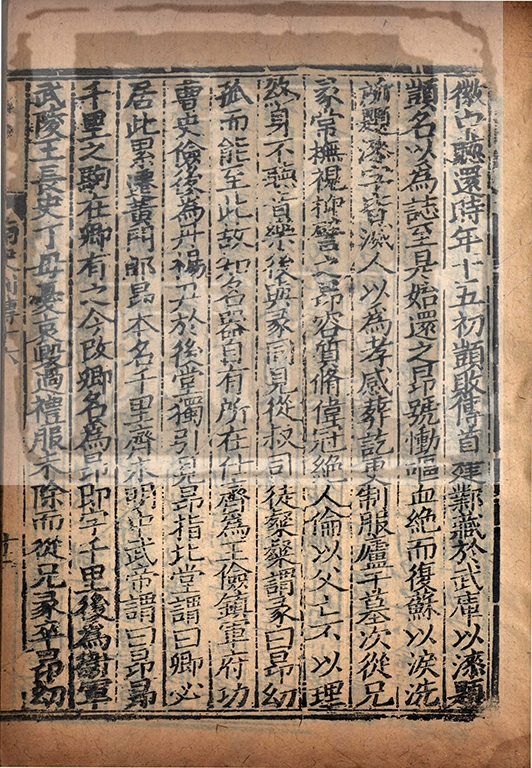 徽中聽還時年十五初顗敗傳首建鄴藏於武庫以漆題
顗名以為誌至是始還之昂號慟嘔血絕而復蘇以淚洗
所題漆字皆滅人以為孝感葬訖更制服廬于墓次從兄
彖常撫視抑譬之昂容質脩偉冠絕人倫以父亡不以理
身不聽音樂後與彖同見從叔司徒粲粲謂彖曰昂幼
孤而能至此故知名器自有所在仕齊為王儉鎮軍府功
曹史儉後為丹楊尹於後堂獨引見昂指北堂謂曰卿必
居此累遷黃門郎昂本名千里齊永明中武帝謂曰昂昂
千里之駒在卿有之今改卿名為昂即字千里後為衛軍
武陵王長史丁母憂哀毀過禮服未除而從兄彖卒昂幼